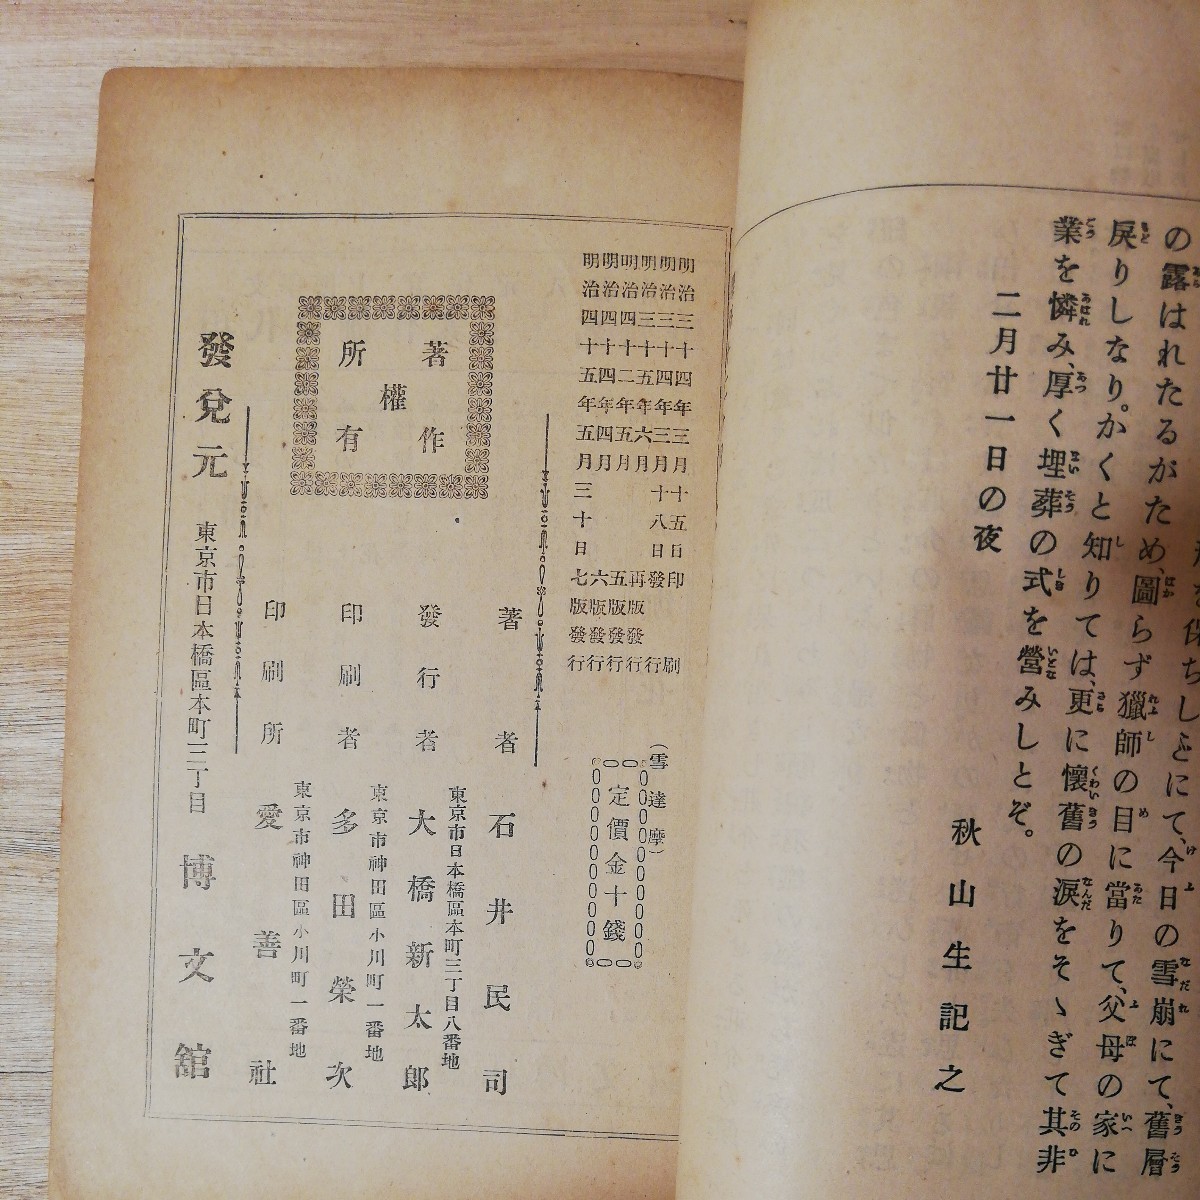 を保ちしとにて、今日の雪崩にて、舊層
の露はれたるがため、圖らず獵師の目に當りて、父母の家に
戾りしなり。かくと知りては、更に懷舊の淚をそゝぎて其非
業を憐み、厚く埋葬の式を營みしとぞ。
二月廿一日の夜
秋山生記之
明治三十四年三月十五日印刷
明治三十四年三月十八日發行
明治三十五年六月再版發行
明治四十二年五月五版發行
明治四十四年四月六版發行
明治四十五年五月三十日七版發行
(雪達摩)
定價金十錢
著作
權
所有
著者 石井民司
東京市日本橋區本町三丁目八番地
發行者 大橋新太郎
東京市神田區小川町一番地
印刷者 多田榮次
東京市神田區小川町一番地
印刷所 愛善社
發兌元 東京市日本橋區本町三丁目 博文舘